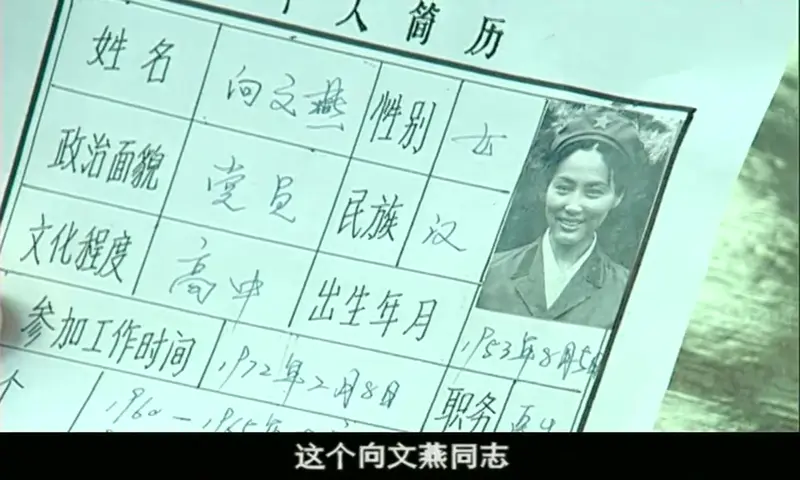 个人简历
姓名 向文燕 性别 女
政治面貌 党员 民族 汉
文化程度 高中 出生年月 1953年8月5日
参加工作时间 1972年2月8日 职务
个 1960—1965年
这个向文燕同志